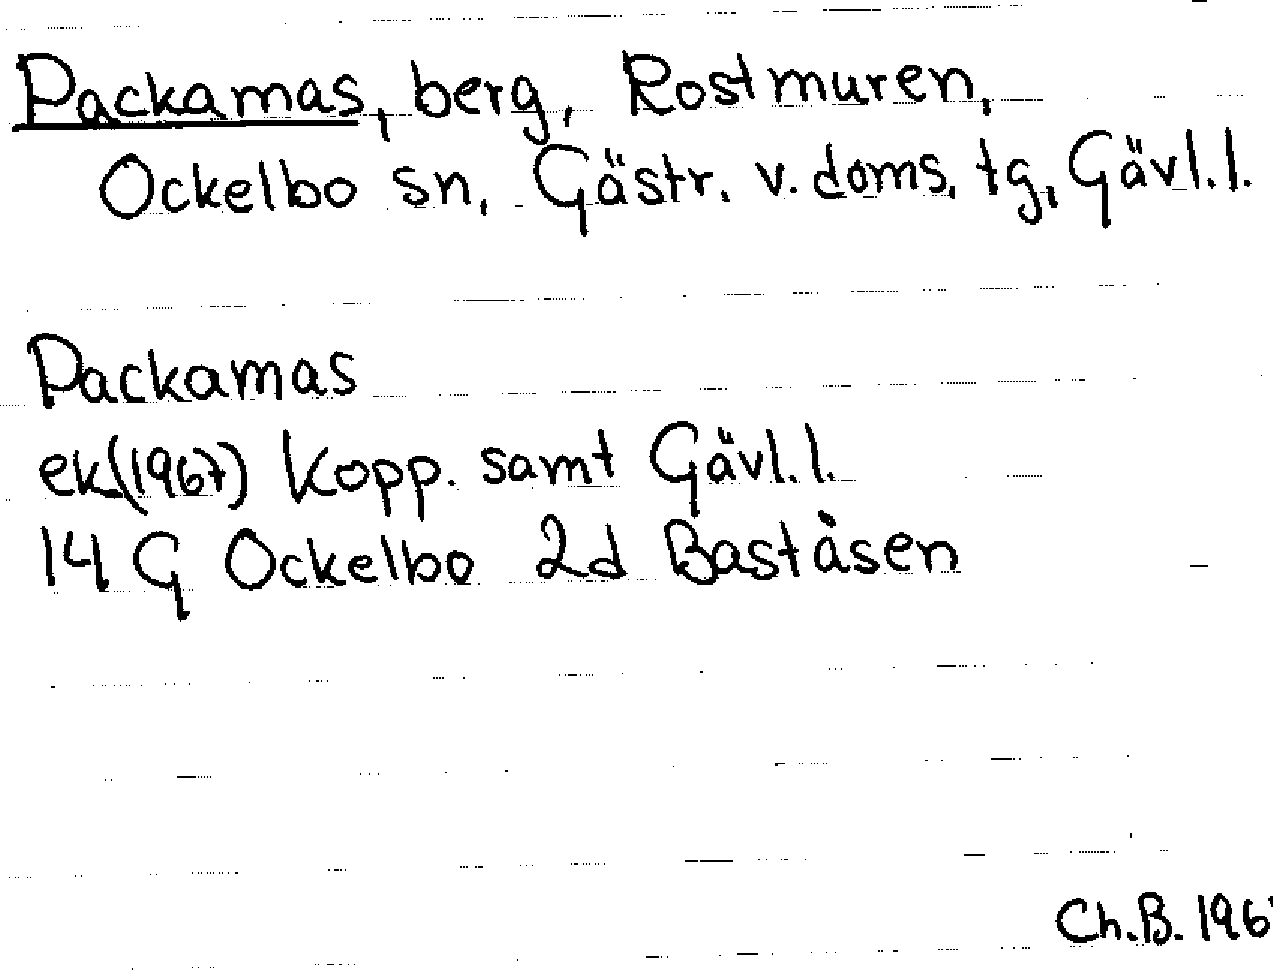 Packamas, berg, Rostmuren,
Ockelbo sn, Gästr. v. doms. tg, Gävl. l.
Packamas
ek(1967) Kopp. samt Gävl. l.
14 G Ockelbo 2d Baståsen
Ch.B. 196